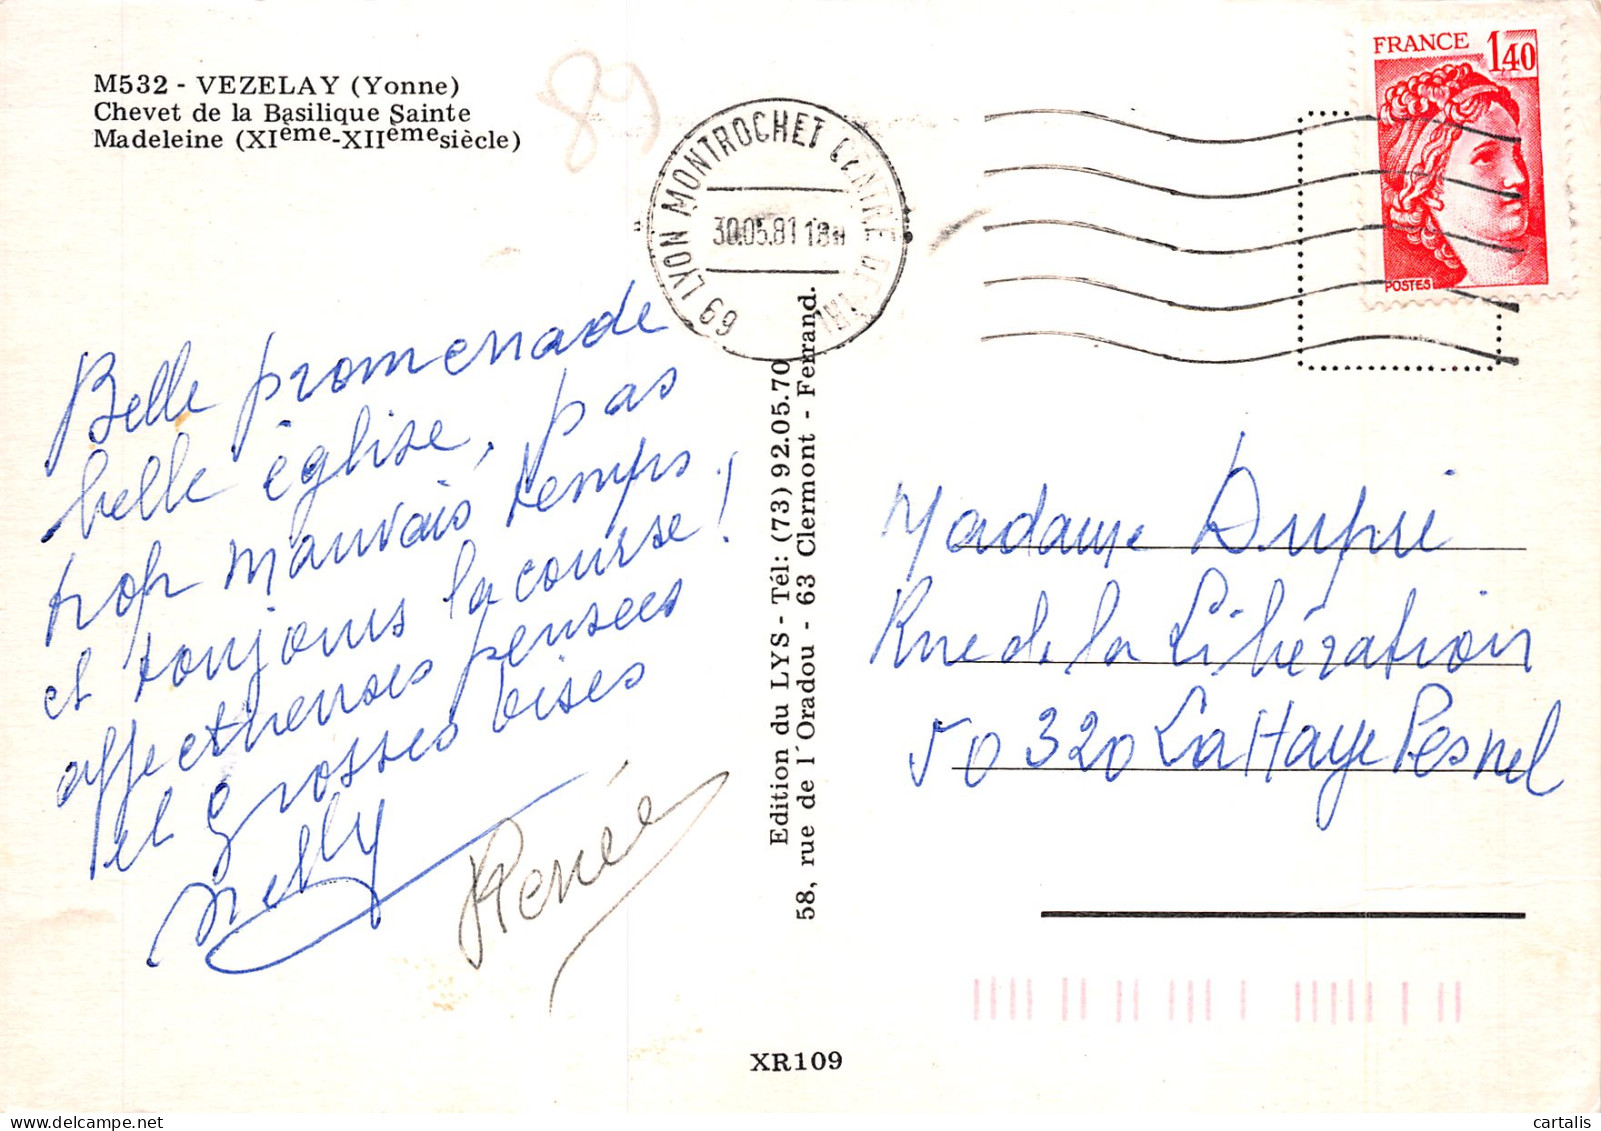 M532 - VEZELAY (Yonne)
Chevet de la Basilique Sainte
Madeleine (XIème-XIIème siècle)
89
69 LYON MONTROCHET CENTRE DE TRI
30.05.81 18H
FRANCE 1,40
POSTES
Belle promenade
belle église, pas
trop mauvais temps.
et toujours la course !
affectueuses pensées
et grosses bises
Nelly
Renée
Edition du LYS - Tél: (73) 92.05.70
58, rue de l'Oradou - 63 Clermont - Ferrand.
Madame Dupré
Rue de la Libération
50320 La Haye Pesnel
XR109
cartalis